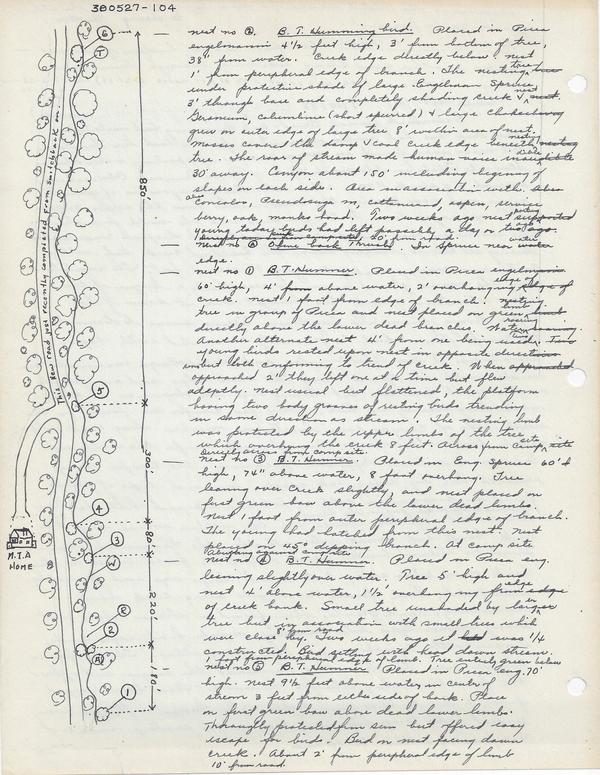 380527-104
nest no ②. B. T. Humming bird. Placed in Picea
engelmanni 4 1/2 feet high, 3' from bottom of tree,
38" from water. Creek edge directly below nest
1' from peripheral edge of branch. The nesting tree
under protective shade of large Engelman Spruce
3' through base and completely shading creek & nest.
Geranium, columbine (short spurred) & large Chokecherry
grew on outer edge of large tree 8' within area of nest.
Mosses covered the damp & cool creek edge beneath nesting
tree. The roar of stream made human voice inaudible
30' away. Canyon about 150' including beginning of
slopes on each side. Area in association with Abies
Concolor, Pseudotsuga m, cottonwood, aspen, service
berry, oak, monks hood. Two weeks ago nest supported
young today birds had left possibly a day or two ago.
20' from road.
nest no Ⓐ Olive back Thrush. In Spruce near water
edge.
nest no ① B.T. Hummer. Placed in Picea engelmanni
60' high, 4' from above water, 2' overhanging edge of
creek. nest 1 foot from edge of branch. nesting
tree in group of Picea and nest placed on green limb
directly above the lower dead branches. Water roaring.
Another alternate nest 4' from one being used. Two
young birds rested upon nest in opposite directions
but both conforming to trend of creek. When
approached 2" they left one at a time but flew
adeptly. Nest usual but flattened, the platform
having two body grooves of resting birds trending
in same direction as stream. The nesting limb
was protected by the upper limbs of the tree
which overhung the creek 8 feet. Across from camp site
Directly across from camp site
nest no ③ B.T. Hummer. Placed in Eng. Spruce 60'
high, 74" above water, 8 foot overhang. Tree
leaning over creek slightly, and nest placed on
first green bow above the lower dead limbs.
Nest 1 foot from outer peripheral edge of branch.
The young had hatched from this nest. Nest
placed on 45° dipping branch. At camp site
nest no ④ B.T. Hummer Placed in Picea eng.
leaning slightly over water. Tree 5' high and
nest 4' above water, 1 1/2' overhang from edge
of creek bank. Small tree unshaded by larger
tree but in association with small trees which
were close by. 8' from road Two weeks ago it was 1/4
constructed. Bird setting with head down stream.
1' from peripheral edge of limb. Tree entirely green below
nest no ⑤ B.T. Hummer Placed in Picea eng. 70'
high. nest 9 1/2 feet above water, in center of
stream 3 feet from either side of bank. Place
on first green bow above dead lower limbs.
Thoroughly protected from sun but offered easy
escape for birds. Bird on nest facing down
creek. About 2' from peripheral edge of limb
10' from road.
This New road just recently completed from Switchback on.
6
T
850'
5
300'
4
80'
3
A
220'
2
A
180'
1
M.T.A
HOME